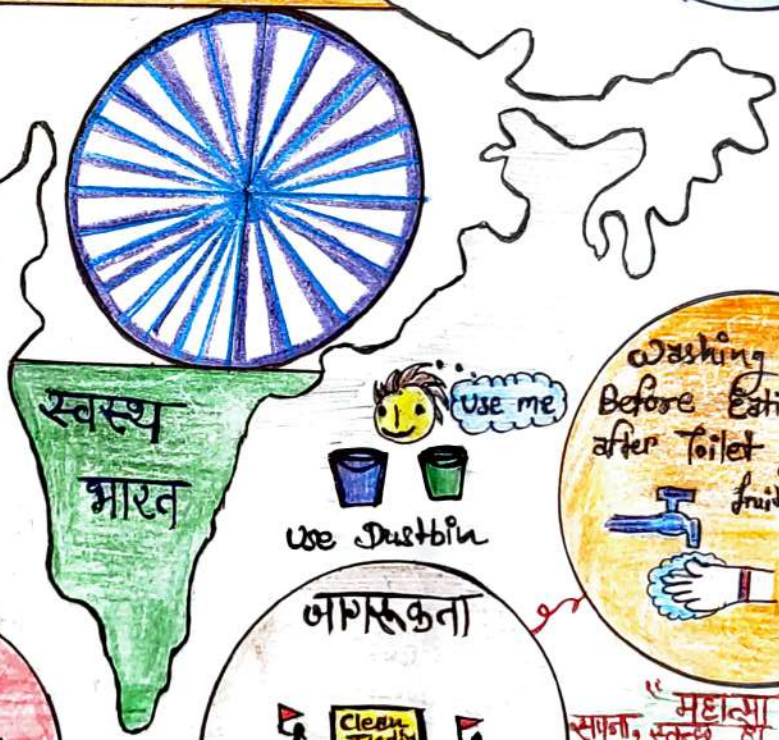 स्वस्थ
भारत
use me
use Dustbin
washing
Before
after Toilet
जागरूकता
Clean
"महात्मा
सपना,